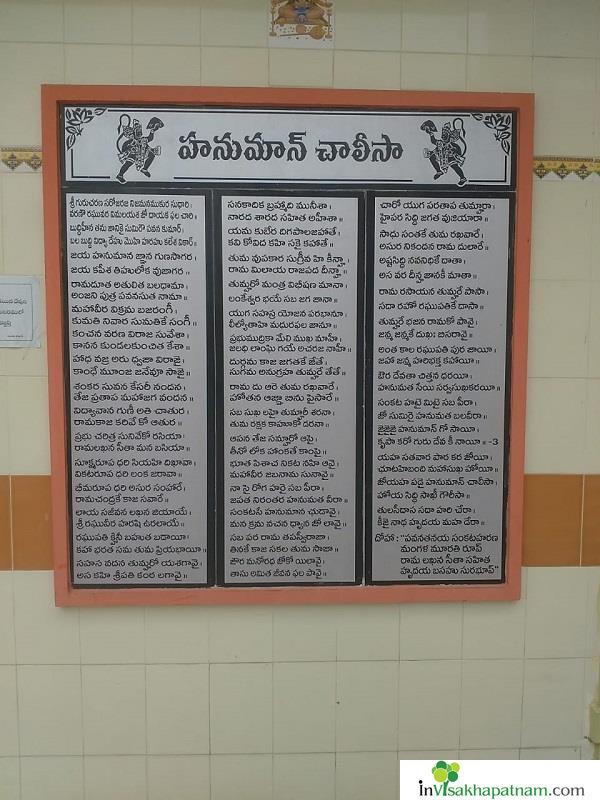 హనుమాన్ చాలీసా
శ్రీ గురుచరణ సరోజరజ నిజమనముకుర సుధారి।
వరణౌ రఘువర విమలయశ జో దాయక ఫల చారి।
బుద్ధిహీన తను జానికై సుమిరౌ పవన కుమార్
బల బుద్ధి విద్యా దేహు మొహి హరహు కలేశ వికార్॥
జయ హనుమాన జ్ఞాన గుణసాగర
జయ కపీశ తిహులోక వుజాగర॥
రామదూత అతులిత బలధామా।
అంజని పుత్ర పవనసుత నామా॥
మహావీర విక్రమ బజరంగీ।
కుమతి నివార సుమతికే సంగీ॥
కంచన వరణ విరాజ సువేశా।
కానన కుండలకుంచిత కేశా॥
హాథ వజ్ర అరు ధ్వజా విరాజై।
కాంథే మూంజ జనేవూ సాజై॥
శంకర సువన కేసరీ నందన।
తేజ ప్రతాప మహాజగ వందన॥
విద్యావాన గుణీ అతి చాతుర।
రామకాజ కరివే కో ఆతుర॥
ప్రభు చరిత్ర సునివేకో రసియా।
రామలఖన సీతా మన బసియా॥
సూక్ష్మరూప ధరి సియహి దిఖావా।
వికటరూప ధరి లంక జరావా॥
భీమరూప ధరి అసుర సంహారే।
రామచంద్రకే కాజ సవారే॥
లాయ సజీవన లఖన జియాయే।
శ్రీ రఘువీర హరషి ఉరలాయే॥
రఘుపతి కీన్హీ బహుత బడాయీ।
కహా భరత సమ తుమ ప్రియభాయీ॥
సహస వదన తుమ్హరో యశగావై।
అస కహి శ్రీపతి కంఠ లగావై॥
సనకాదిక బ్రహ్మాది మునీశా।
నారద శారద సహిత అహీశా॥
యమ కుబేర దిగపాలజహాతే।
కవి కోవిద కహి సకై కహాతే॥
తుమ వుపకార సుగ్రీవ హి కీన్హా।
రామ మిలాయ రాజపద దీన్హా॥
తుమ్హరో మంత్ర విభీషణ మానా।
లంకేశ్వర భయే సబ జగ జానా॥
యుగ సహస్ర యోజన పరభానూ।
లీల్యోతాహి మధురఫల జానూ॥
ప్రభుముద్రికా మేలి ముఖ మాహీ।
జలధి లాంఘి గయే అచరజ నాహీ॥
దుర్గమ కాజ జగతకే జేతే।
సుగమ అనుగ్రహ తుమ్హరే తేతే॥
రామ దు ఆరె తుమ రఖవారే।
హోతన ఆజ్ఞా బిను పైసారే॥
సబ సుఖ లహై తుమ్హారీ శరనా।
తుమ రక్షక కాహూకో దరనా॥
ఆపన తేజ సమ్హారో ఆపై।
తీనో లోక హాంకతే కాంపై॥
భూత పిశాచ నికట నహి ఆవై।
మహావీర జబనామ సునావై॥
నా సై రోగ హరై సబ పీరా।
జపత నిరంతర హనుమత వీరా॥
సంకటసే హనుమాన ఛుడావై।
మన క్రమ వచన ధ్యాన జో లావై॥
సబ పర రామ తపస్వీరాజా।
తినకే కాజ సకల తుమ సాజా॥
ఔర మనోరథ జోకో యిలావై।
తాసు అమిత జీవన ఫల పావై॥
చారో యుగ పరతాప తుమ్హారా।
హైపర సిద్ధి జగత వుజియారా॥
సాధు సంతకే తుమ రఖవారే।
అసుర నికందన రామ దులారే॥
అష్టసిద్ధి నవనిధికే దాతా।
అస వర దీన్హ జానకీ మాతా॥
రామ రసాయన తుమ్హరే పాసా।
సదా రహో రఘుపతికే దాసా॥
తుమ్హరే భజన రామకో పావై।
జన్మ జన్మకే దుఃఖ బిసరావై॥
అంత కాల రఘుపతి పుర జాయీ।
జహా జన్మ హరిభక్త కహాయీ॥
ఔర దేవతా చిత్తన ధరయీ।
హనుమత సేయి సర్వసుఖకరయీ॥
సంకట హటై మిటై సబ పీరా।
జో సుమిరై హనుమత బలవీరా॥
జైజైజై హనుమాన్ గో సాయీ।
కృపా కరో గురు దేవ కీ నాయీ॥ -3
యహ శతవార పాఠ కర జోయీ।
ఛూటహిబంది మహాసుఖ హోయీ॥
జోయహ పడై హనుమాన్ చాలీసా।
హోయ సిద్ధి సాఖీ గౌరీసా॥
తులసీదాస సదా హరి చేరా।
కీజై నాథ హృదయ మహ డేరా॥
దోహా : "పవనతనయ సంకటహరణ
మంగళ మూరతి రూప్
రామ లఖన సీతా సహిత
హృదయ బసహు సురభూప్"
inVisakhapatnam.com